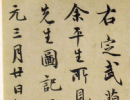 右定武蘭
余平生所見
先生圖記
元三月廿日